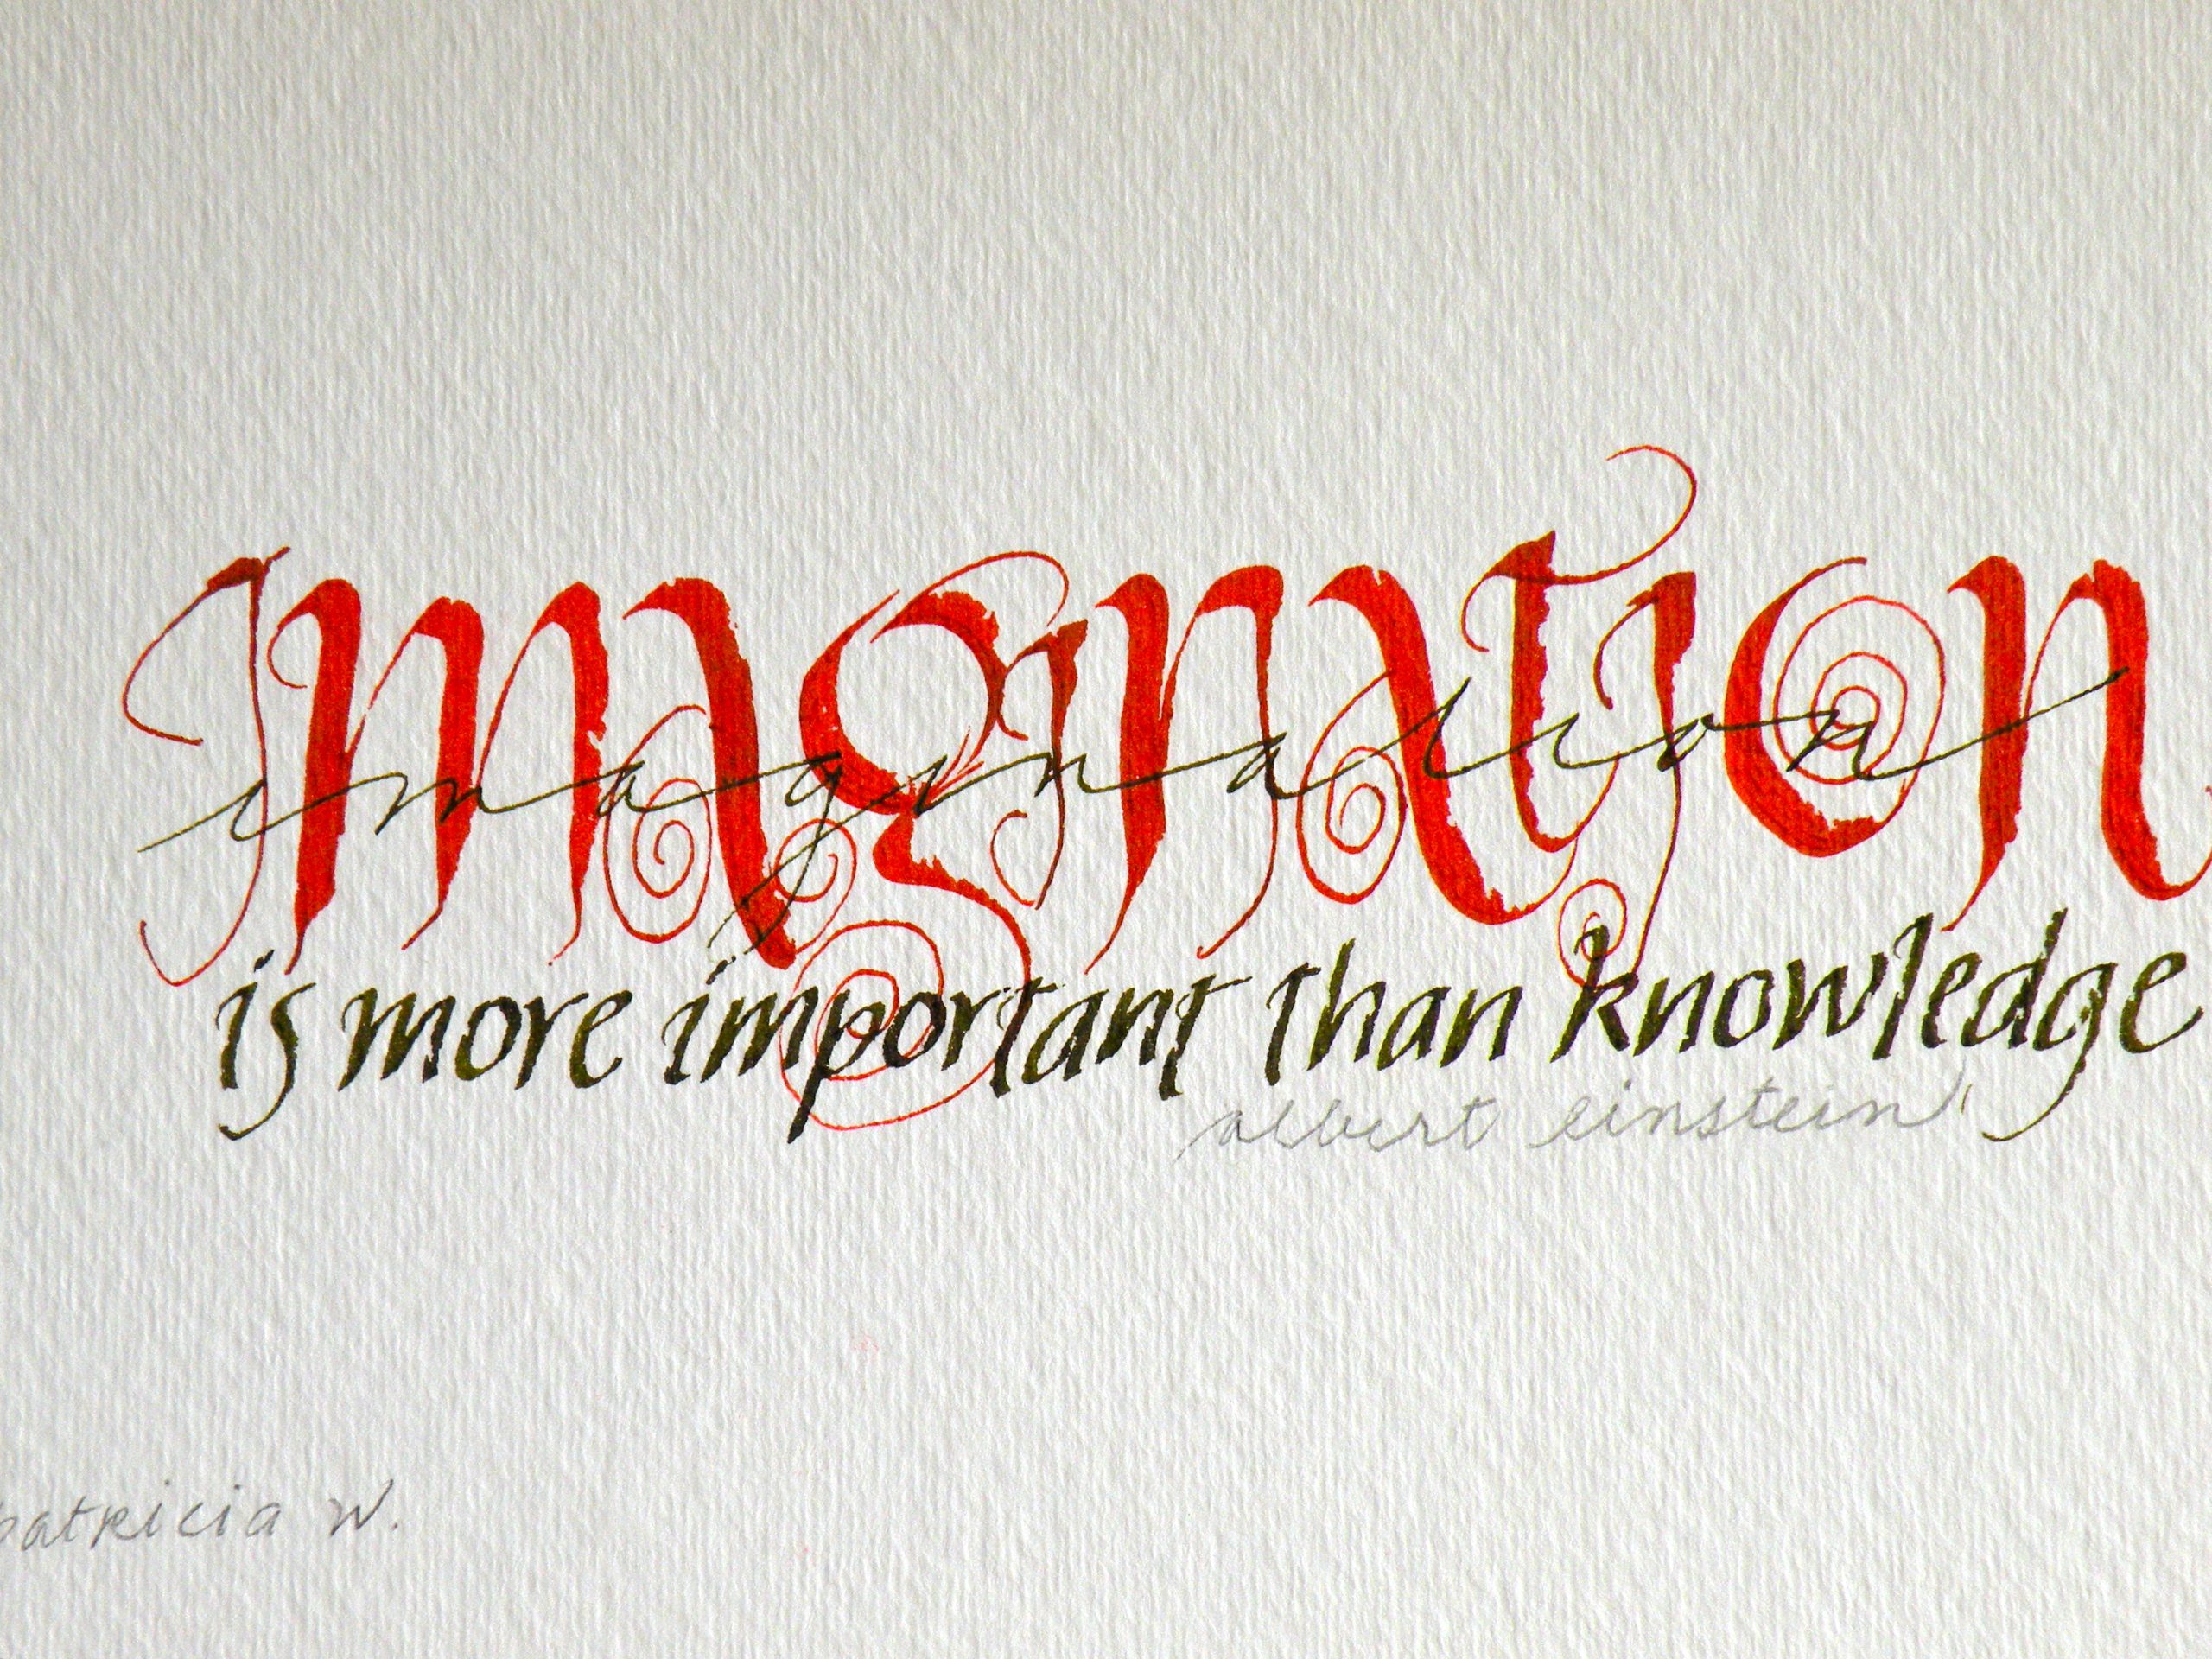 Imagination
imagination
is more important than knowledge
albert einstein
patricia w.